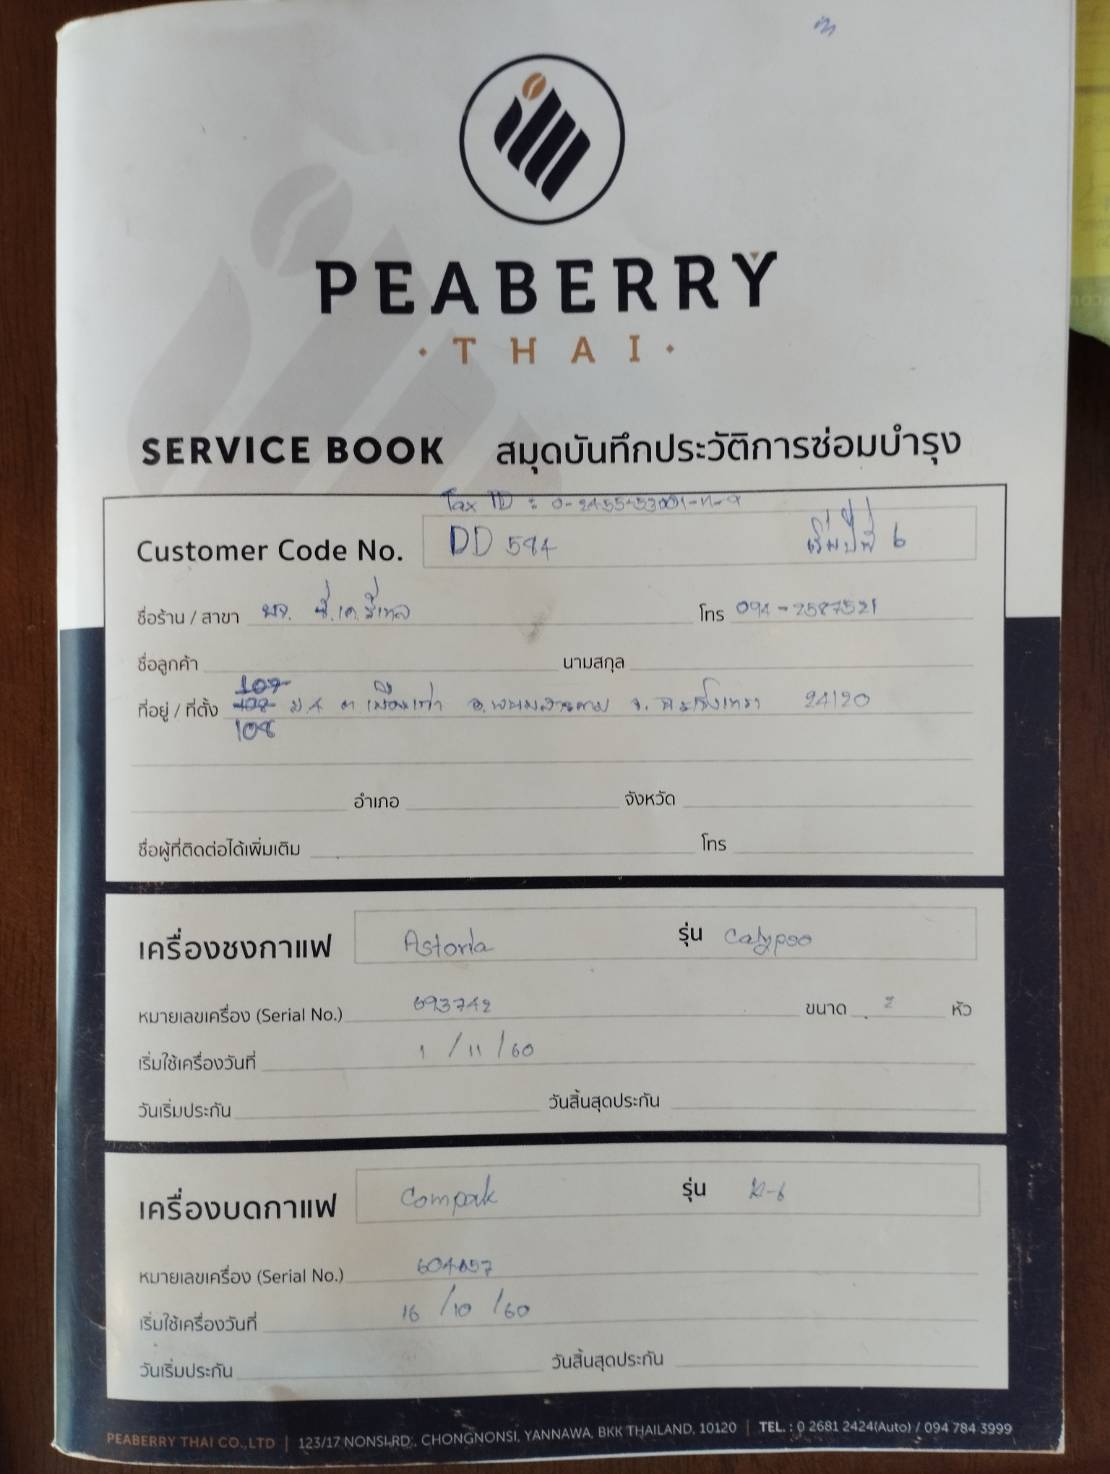 PEABERRY
· THAI ·
SERVICE BOOK สมุดบันทึกประวัติการซ่อมบำรุง
Tax ID :
Customer Code No. DD 594 เริ่มปีที่ 6
ชื่อร้าน / สาขา โทร 094-2587521
ชื่อลูกค้า นามสกุล
107
ที่อยู่ / ที่ตั้ง ม.4 ต เมืองเก่า อ.พนมสารคาม จ. ฉะเชิงเทรา 24120
108
อำเภอ จังหวัด
ชื่อผู้ที่ติดต่อได้เพิ่มเติม โทร
เครื่องชงกาแฟ Astoria รุ่น Calypso
หมายเลขเครื่อง (Serial No.) 693742 ขนาด 2 หัว
เริ่มใช้เครื่องวันที่ 1 / 11 / 60
วันเริ่มประกัน วันสิ้นสุดประกัน
เครื่องบดกาแฟ Compak รุ่น K-6
หมายเลขเครื่อง (Serial No.)
เริ่มใช้เครื่องวันที่ 16 / 10 / 60
วันเริ่มประกัน วันสิ้นสุดประกัน
PEABERRY THAI CO.,LTD | 123/17 NONSI RD., CHONGNONSI, YANNAWA, BKK THAILAND, 10120 | TEL. : 0 2681 2424(Auto) / 094 784 3999